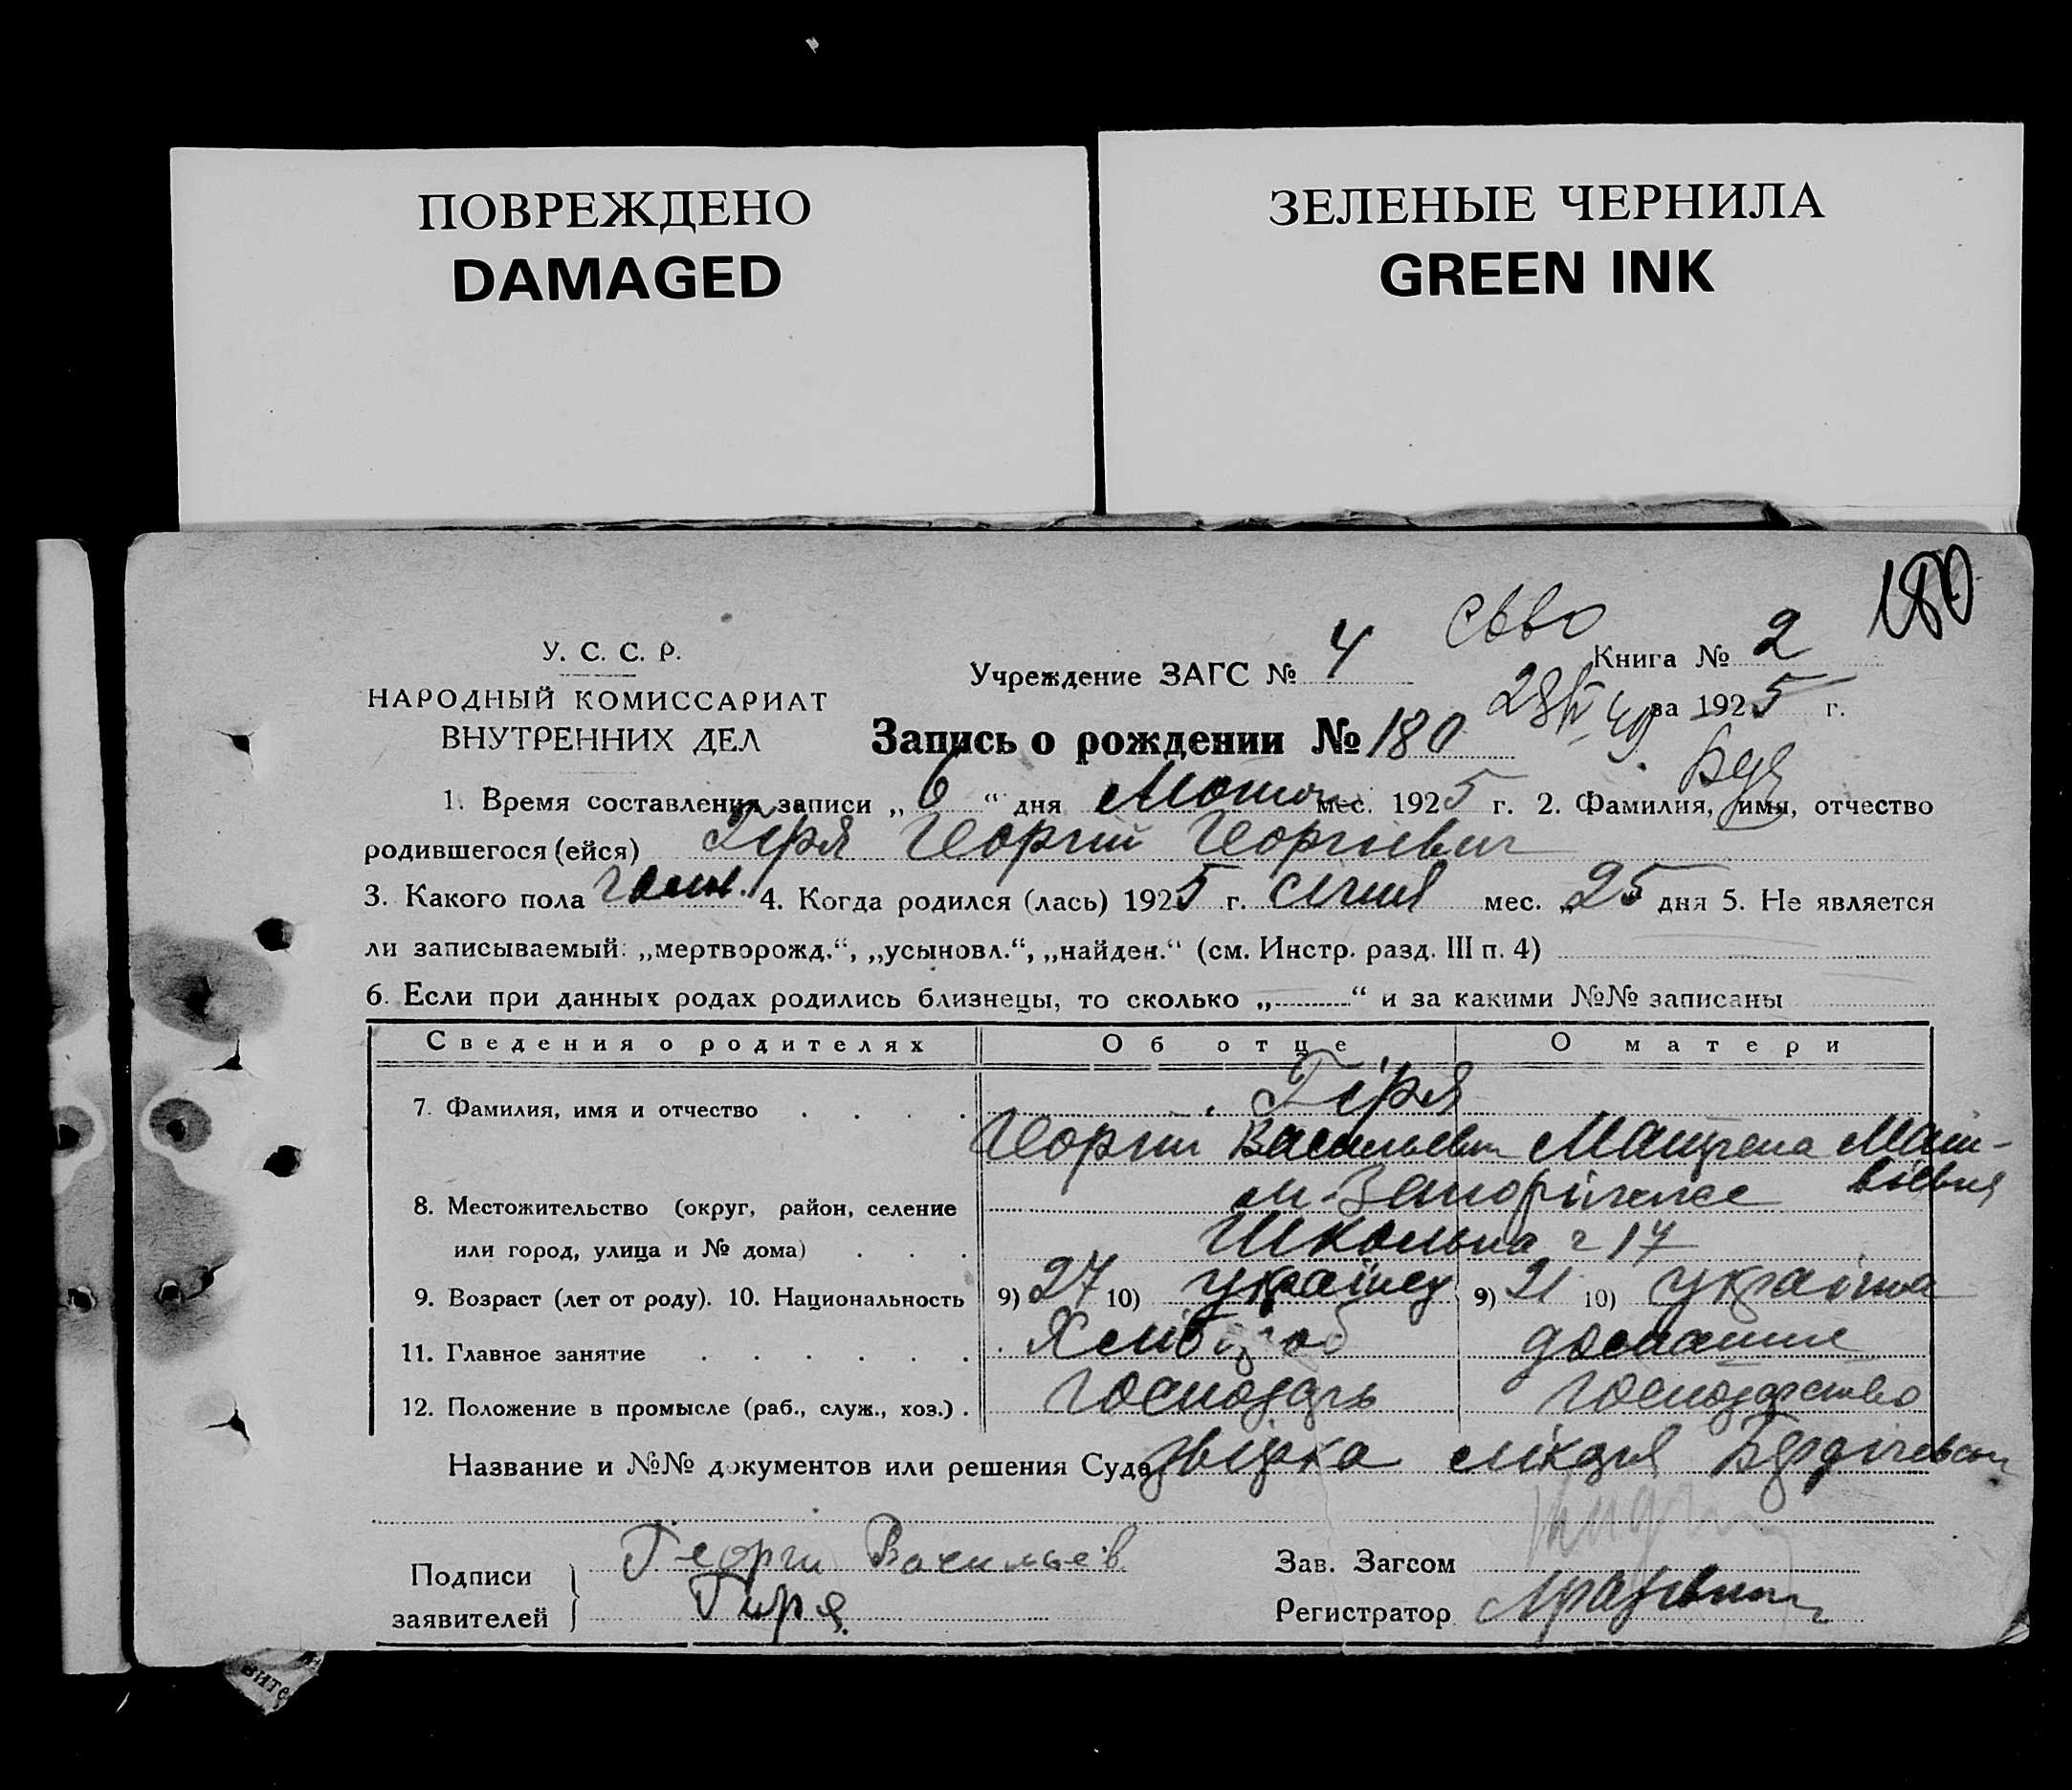 ПОВРЕЖДЕНО
DAMAGED
ЗЕЛЕНЫЕ ЧЕРНИЛА
GREEN INK
180
У. С. С. Р.
НАРОДНЫЙ КОМИССАРИАТ
ВНУТРЕННИХ ДЕЛ
Учреждение ЗАГС № 4
Книга № 2
за 1925 г.
Запись о рождении № 180
1. Время составления записи „ 6 “ дня мес. 1925 г. 2. Фамилия, имя, отчество
родившегося (ейся) Гіря Георгій Георгіевич
3. Какого пола 4. Когда родился (лась) 1925 г. січня мес. „25 дня 5. Не является
ли записываемый: „мертворожд.“, „усыновл.“, „найден.“ (см. Инстр. разд. III п. 4)
6. Если при данных родах родились близнецы, то сколько „ “ и за какими №№ записаны
Сведения о родителях Об отце О матери
7. Фамилия, имя и отчество Гіря
Георгій Васильевич
8. Местожительство (округ, район, селение м. Запоріжже
или город, улица и № дома) Школьна 17
9. Возраст (лет от роду). 10. Национальность 9) 27 10) українец 9) 21 10) українка
11. Главное занятие Хлібороб домашне
12. Положение в промысле (раб., служ., хоз.) господарь господарство
Название и №№ документов или решения Суда
Подписи
заявителей
Георги Васильев
Гиря
Зав. Загсом
Регистратор